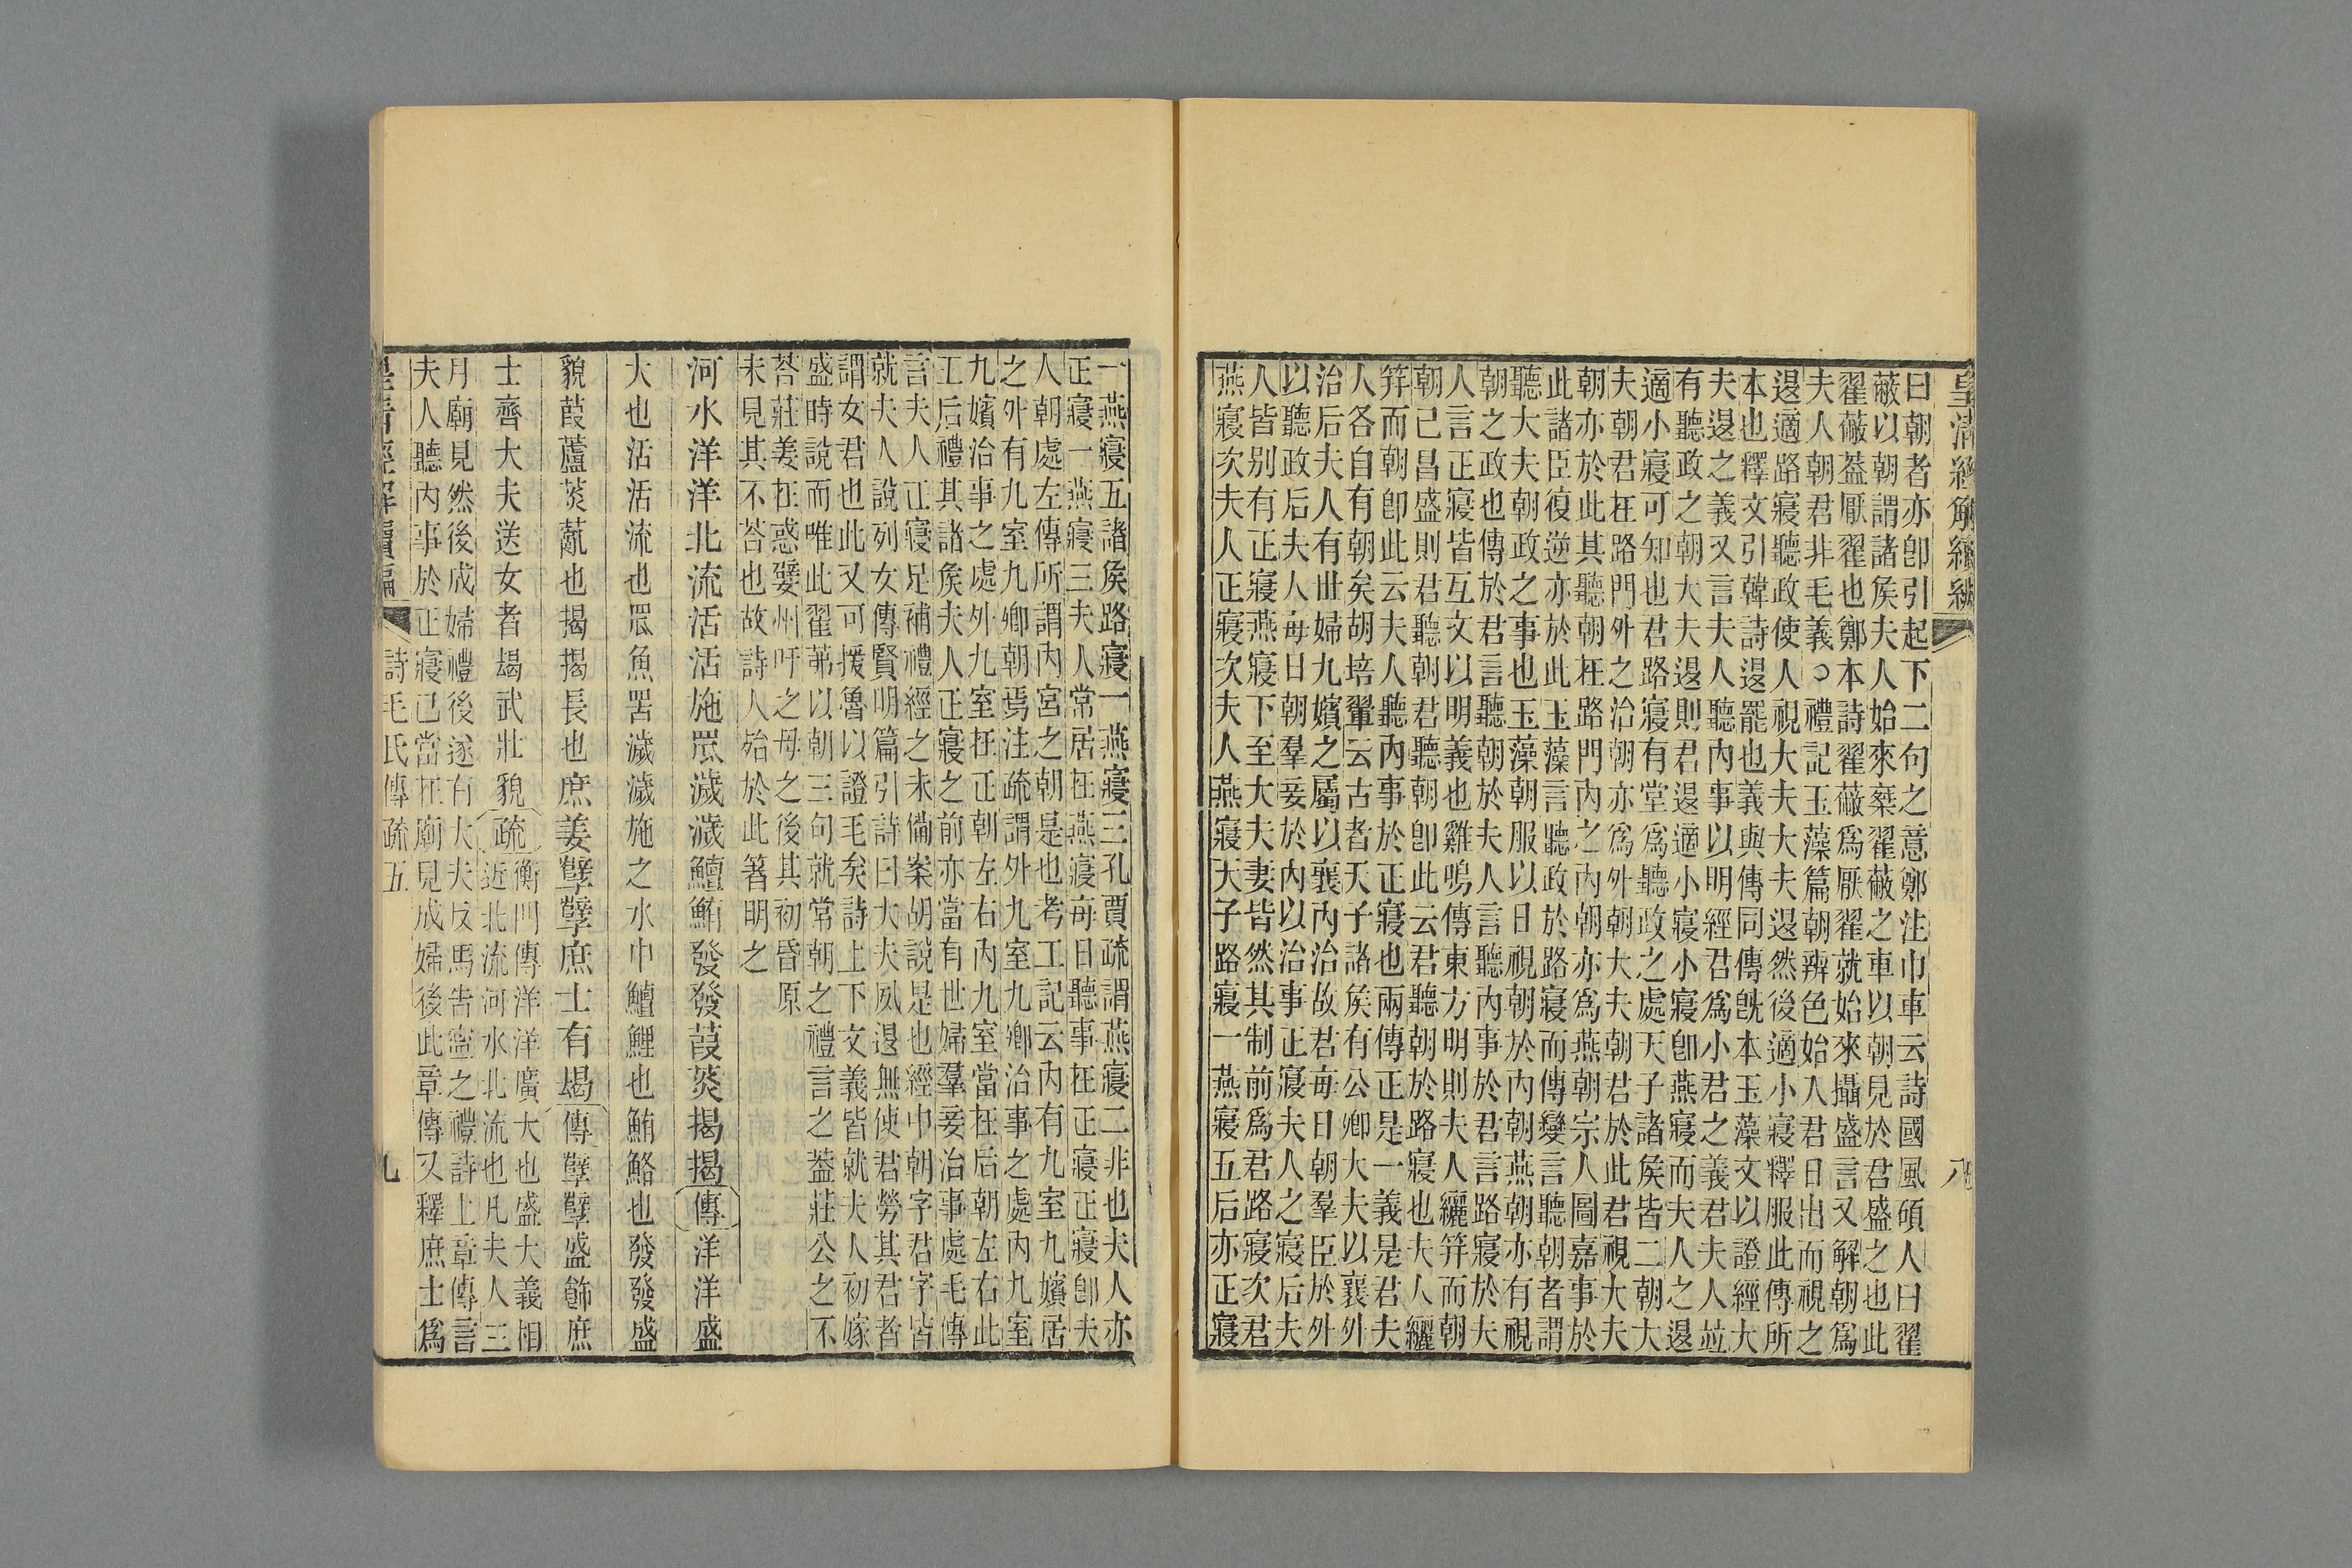 皇清經解續編
八
曰朝者亦卽引起下二句之意鄭注巾車云詩國風碩人曰翟
蔽以朝謂諸矦夫人始來椉翟蔽之車以朝見於君盛之也此
翟蔽葢厭翟也鄭本詩翟蔽爲厭翟就始來攝盛言又解朝爲
夫人朝君非毛義○禮記玉藻篇朝辨色始入君日出而視之
退適路寢聽政使人視大夫大夫退然後適小寢釋服此傳所
本也釋文引韓詩退罷也義與傳同傳旣本玉藻文以證經大
夫退之義又言夫人聽內事以明經君爲小君之義君夫人竝
有聽政之朝大夫退則君退適小寢小寢卽燕寢而夫人之退
適小寢可知也君路寢有堂爲聽政之處天子諸矦皆二朝大
夫朝君在路門外之治朝亦爲外朝大夫朝君於此君視大夫
朝亦於此其聽朝在路門內之內朝亦爲燕朝宗人圖嘉事於
此諸臣復逆亦於此玉藻言聽政於路寢而傳變言聽朝者謂
聽大夫朝政之事也玉藻朝服以日視朝於內朝燕朝亦有視
朝之政也傳於君言聽朝於夫人言聽內事於君言路寢於夫
人言正寢皆互文以明義也雞鳴傳東方明則夫人纚笄而朝
朝已昌盛則君聽朝君聽朝卽此云君聽朝於路寢也夫人纚
笄而朝卽此云夫人聽內事於正寢也兩傳正是一義是君夫
人各自有朝矣胡培翬云古者天子諸矦有公卿大夫以襄外
治后夫人有世婦九嬪之屬以襄內治故君每日朝羣臣於外
以聽政后夫人每日朝羣妾於內以治事正寢夫人之寢后夫
人皆別有正寢燕寢下至大夫妻皆然其制前爲君路寢次君
燕寢次夫人正寢次夫人燕寢天子路寢一燕寢五后亦正寢
一燕寢五諸矦路寢一燕寢三孔賈疏謂燕寢二非也夫人亦
正寢一燕寢三夫人常居在燕寢每日聽事在正寢正寢卽夫
人朝處左傳所謂內宮之朝是也考工記云內有九室九嬪居
之外有九室九卿朝焉注疏謂外九室九卿治事之處內九室
九嬪治事之處外九室在正朝左右內九室當在后朝左右此
王后禮其諸矦夫人正寢之前亦當有世婦羣妾治事處毛傳
言夫人正寢足補禮經之未備案胡說是也經中朝字君字皆
就夫人說列女傳賢明篇引詩曰大夫夙退無使君勞其君者
謂女君也此又可援魯以證毛矣詩上下文義皆就夫人初嫁
盛時說而唯此翟茀以朝三句就常朝之禮言之葢莊公之不
荅莊姜在惑嬖州吁之母之後其初昏原
未見其不荅也故詩人殆於此箸明之
河水洋洋北流活活施罛濊濊鱣鮪發發葭菼揭揭傳洋洋盛
大也活活流也罛魚罟濊濊施之水中鱣鯉也鮪鮥也發發盛
貌葭蘆菼薍也揭揭長也庶姜孽孽庶士有朅傳孽孽盛飾庶
士齊大夫送女者朅武壯貌疏
衡門傳洋洋廣大也盛大義相
近北流河水北流也凡夫人三
月廟見然後成婦禮後遂有大夫反馬告寧之禮詩上章傳言
夫人聽內事於正寢已當在廟見成婦後此章傳又釋庶士爲
皇清經解續編
詩毛氏傳疏五
九